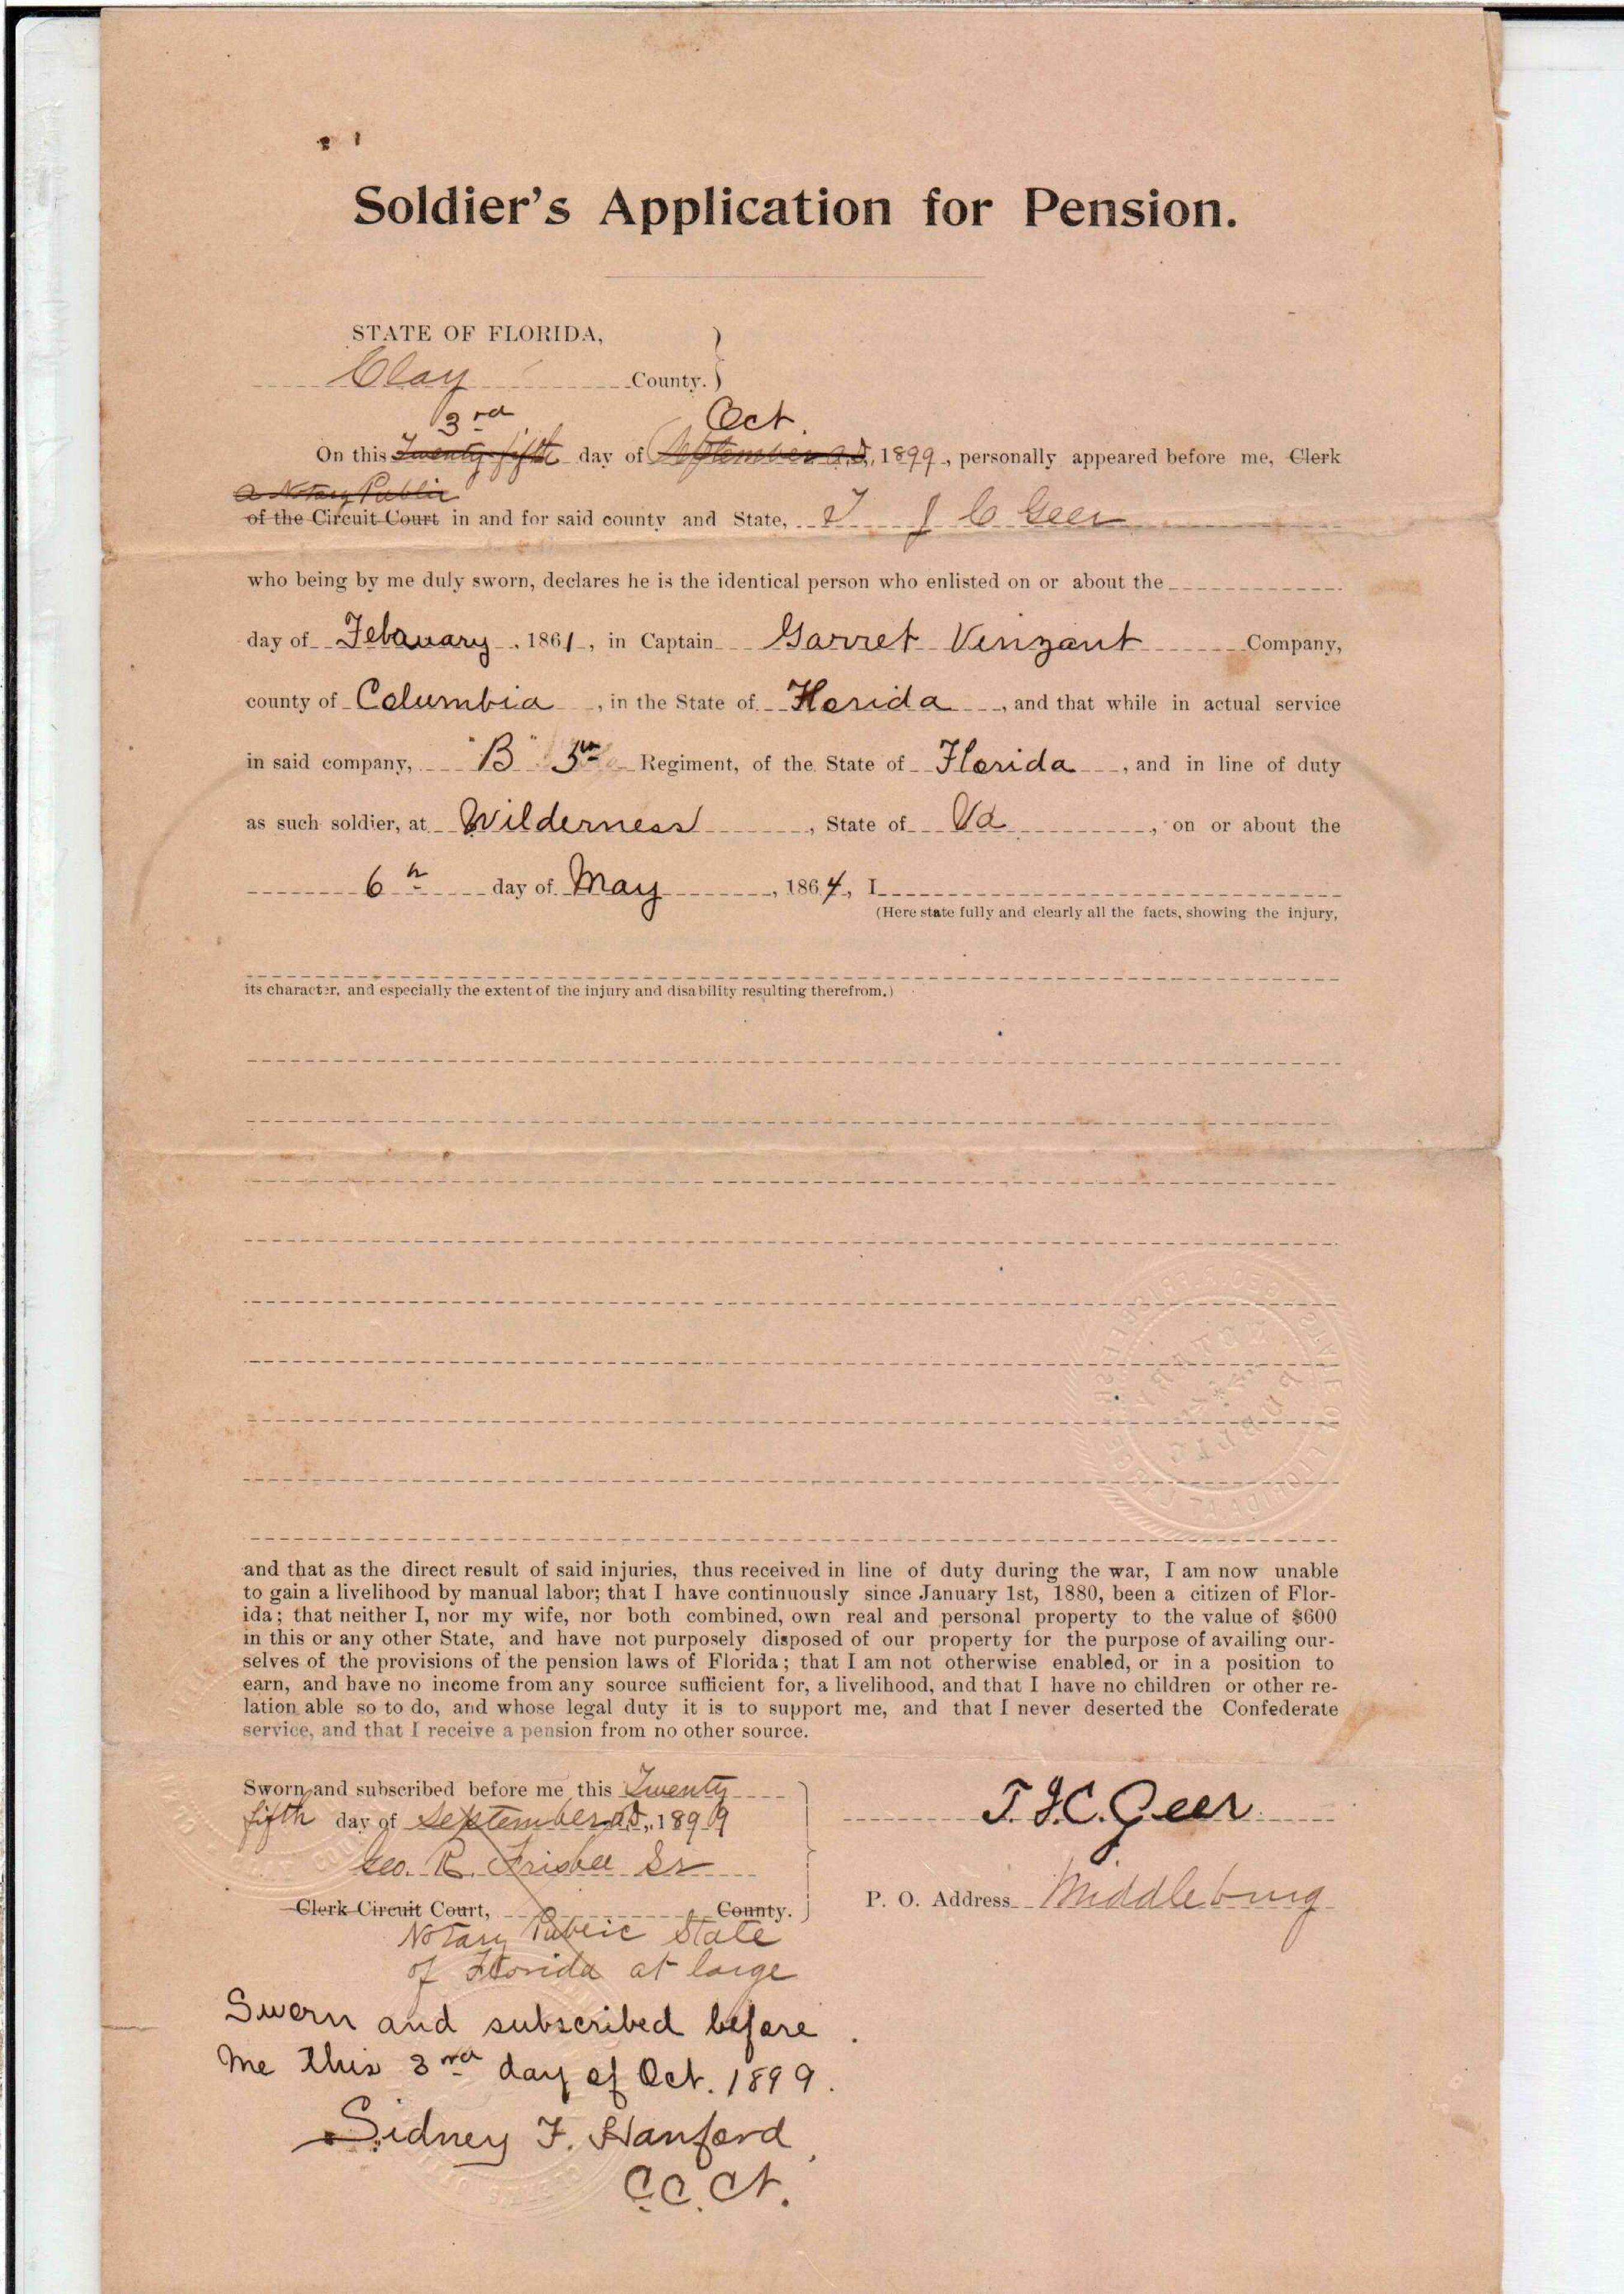 Soldier's Application for Pension.
STATE OF FLORIDA,
Clay County.
3rd Oct.
On this Twenty-fifth day of September A.D., 1899, personally appeared before me, Clerk
a Notary Public
of the Circuit Court in and for said county and State, T J C Geer
who being by me duly sworn, declares he is the identical person who enlisted on or about the
day of Febauary, 1861, in Captain Garret Vinzant Company,
county of Columbia, in the State of Florida, and that while in actual service
in said company, "B" 5th Regiment, of the State of Florida, and in line of duty
as such soldier, at Wilderness, State of Va, on or about the
6th day of May, 1864, I
(Here state fully and clearly all the facts, showing the injury,
its character, and especially the extent of the injury and disability resulting therefrom.)
and that as the direct result of said injuries, thus received in line of duty during the war, I am now unable
to gain a livelihood by manual labor; that I have continuously since January 1st, 1880, been a citizen of Flor-
ida; that neither I, nor my wife, nor both combined, own real and personal property to the value of $600
in this or any other State, and have not purposely disposed of our property for the purpose of availing our-
selves of the provisions of the pension laws of Florida; that I am not otherwise enabled, or in a position to
earn, and have no income from any source sufficient for, a livelihood, and that I have no children or other re-
lation able so to do, and whose legal duty it is to support me, and that I never deserted the Confederate
service, and that I receive a pension from no other source.
Sworn and subscribed before me this Twenty
fifth day of September A.D., 1899
Geo. R. Frisbee Sr
Clerk Circuit Court, County.
Notary Public State
of Florida at large
T. J. C. Geer
P. O. Address Middleburg
Sworn and subscribed before
me this 3rd day of Oct. 1899.
Sidney F. Hanford,
C.C. Ct.
GEO. R. FRISBEE SR.
STATE OF FLORIDA AT LARGE
NOTARY PUBLIC